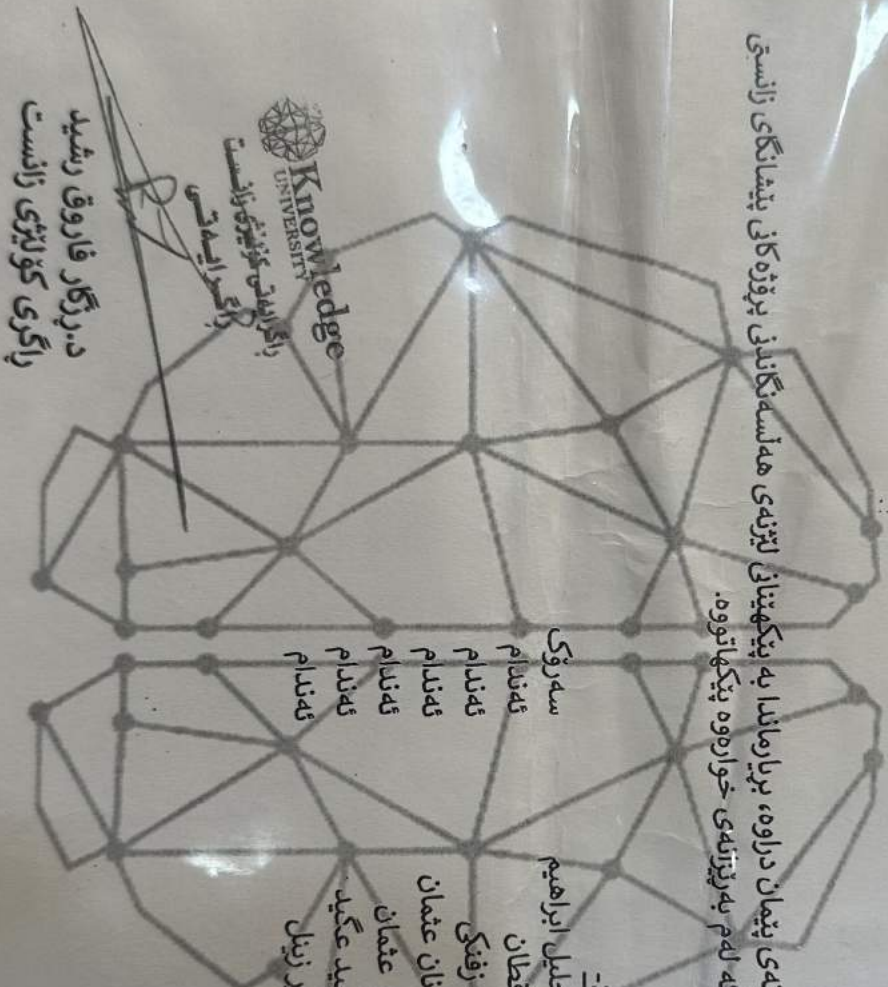 ـەی پێمان دراوە، بڕیارماندا بە پێکهێنانی لێژنەی هەڵسەنگاندنی پرۆژەکانی پێشانگای زانستی
ـە لەم بەڕێزانەی خوارەوە پێکهاتووە.
ـلیل ابراهیم سەرۆک
ـقطان ئەندام
زفنکی ئەندام
ـنان عثمان ئەندام
عثمان ئەندام
ـید عگید ئەندام
ـر زینل ئەندام
Knowledge
UNIVERSITY
ڕاگرایەتی کۆلێژی زانست
ڕاگرایەتی
د.ڕزگار فاروق رشید
ڕاگری کۆلێژی زانست